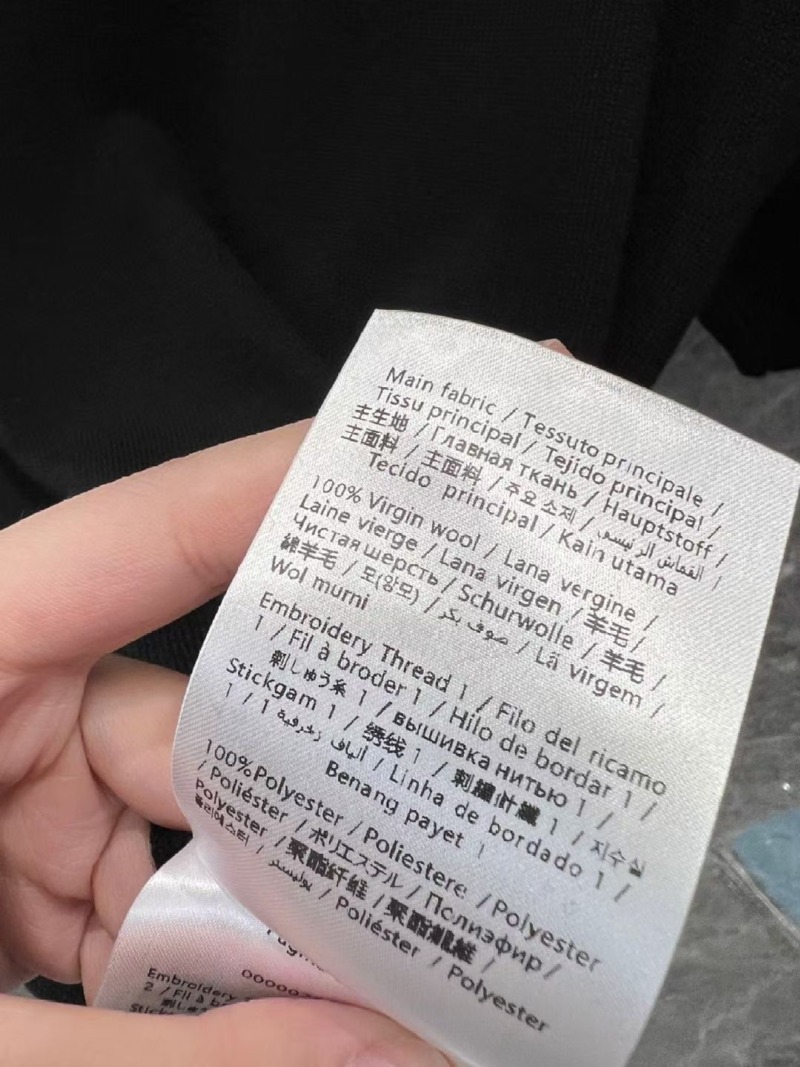 Main fabric / Tessuto principale /
Tissu principal / Tejido principal /
主生地 / Главная ткань / Hauptstoff /
主面料 / 主面料 / 주요 소재 / القماش الرئيسي /
Tecido principal / Kain utama
100% Virgin wool / Lana vergine /
Laine vierge / Lana virgen / 羊毛 /
Чистая шерсть / Schurwolle / 羊毛 /
綿羊毛 / 모(양모) / صوف بكر / Lã virgem /
Wol murni
Embroidery Thread 1 / Filo del ricamo
1 / Fil à broder 1 / Hilo de bordar 1 /
刺しゅう糸 1 / вышивка нитью 1 /
Stickgarn 1 / 绣线 1 / 1 / 지수실
1 / 1 / Linha de bordado 1 /
Benang payet 1
100%Polyester / Poliestere / Polyester
/ Poliéster / ポリエステル / Полиэфир /
Polyester / 聚酯纤维 / /
폴리에스터 / بوليستر / Poliéster / Polyester
Embroidery
2 / Fil à b
刺しゅ